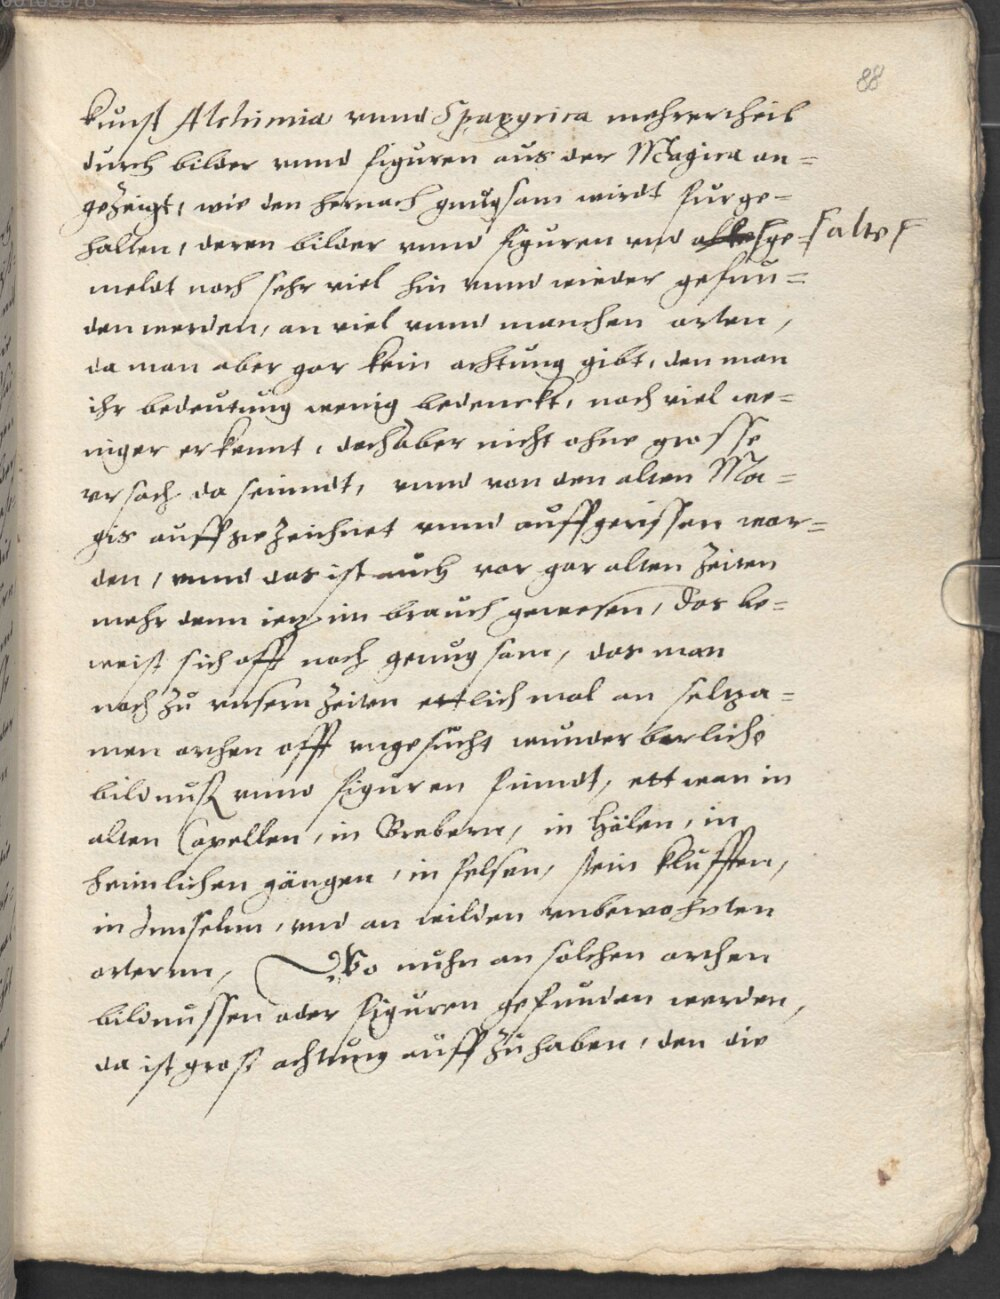 88
kunst Alchimia vnnd Spagyrica mehrertheil
durch bilder vnnd figuren aus der Magica an=
gezeigt, wie den hernach gnugsam wirdt furge=
halten, deren bilder vnnd figuren vnd ge= altes
meldt noch sehr viel hin vnnd wieder gefun=
den werden, an viel vnnd manchen orten,
da man aber gar kein achtung gibt, den man
ihr bedeutung wenig bedenckt, noch viel we=
niger erkennt, doch aber nicht ohne grosse
vrsach da seinndt, vnnd von den alten Ma=
gis auffgezeichnet vnnd auffgerissen wor=
den, vnnd das ist auch vor gar alten Zeiten
mehr denn ietz im brauch gewesen, das be=
weist sich offt noch genugsam, das man
noch zu vnsern Zeiten ettlich mal an seltza=
men orthen offt vngesucht wunderbarliche
bildnuß vnnd figuren findt, ettwan in
alten Capellen, in Grebern, in Hölen, in
heimlichen gängen, in felsen, stein klufften,
in Innseln, vnd an wilden vnbewohnten
orternn, Wo nuhn an solchen orthen
bildnussen oder figuren gefunden werden,
da ist groß achtung auff zu haben, den die